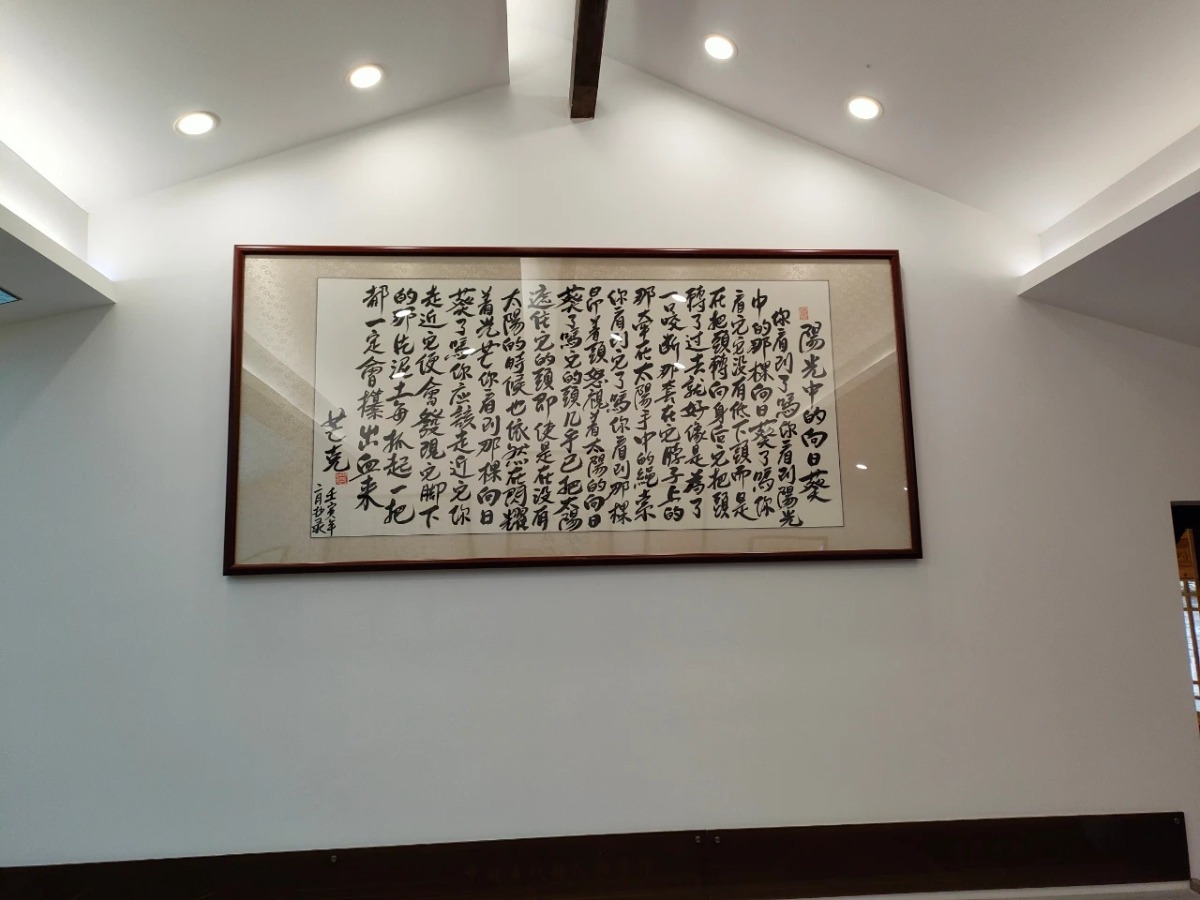 陽光中的向日葵
你看到了嗎你看到陽光
中的那棵向日葵了嗎你
看它它没有低下頭而是
在把頭轉向身后它把頭
轉了过去就好像是為了
一口咬断那套在它脖子上的
那牽在太陽手中的繩索
你看到它了嗎你看到那棵
昂着頭怒視着太陽的向日
葵了嗎它的頭几乎已把太陽
遮住它的頭即使是在没有
太陽的時候也依然在閃耀
着光芒你看到那棵向日
葵了嗎你應該走近它你
走近它便會發現它脚下
的那片泥土每抓起一把
都一定會攥出血来
芒克
壬寅年
月抄录